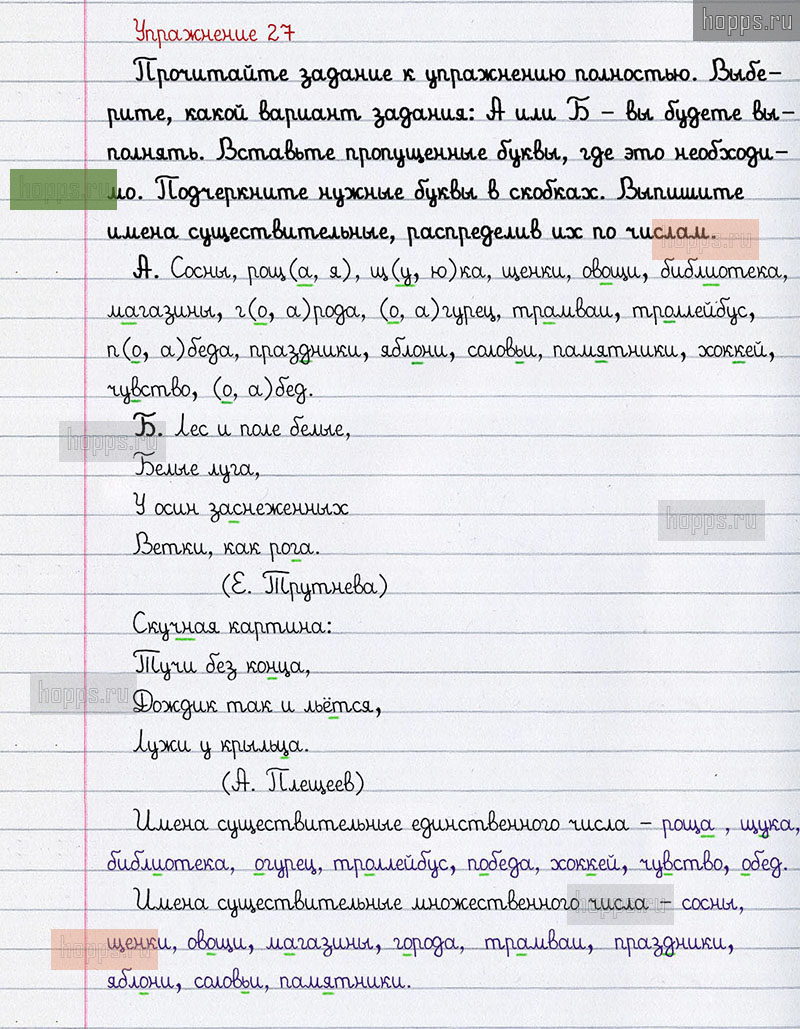 hopps.ru
Упражнение 27
Прочитайте задание к упражнению полностью. Выбе-
рите, какой вариант задания: А или Б – вы будете вы-
полнять. Вставьте пропущенные буквы, где это необходи-
hopps.ru
мо. Подчеркните нужные буквы в скобках. Выпишите
имена существительные, распределив их по числам.
hopps.ru
А. Сосны, рощ(а, я), щ(у, ю)ка, щенки, овощи, библиотека,
магазины, г(о, а)рода, (о, а)гурец, трамваи, троллейбус,
п(о, а)беда, праздники, яблони, соловьи, памятники, хоккей,
чувство, (о, а)бед.
Б. Лес и поле белые,
hopps.ru
Белые луга,
У осин заснеженных
hopps.ru
Ветки, как рога.
(Е. Трутнева)
Скучная картина:
Тучи без конца,
hopps.ru
Дождик так и льётся,
Лужи у крыльца.
(А. Плещеев)
Имена существительные единственного числа – роща , щука,
библиотека, огурец, троллейбус, победа, хоккей, чувство, обед.
Имена существительные множественного числа – сосны,
hopps.ru
щенки, овощи, магазины, города, трамваи, праздники,
hopps.ru
яблони, соловьи, памятники.